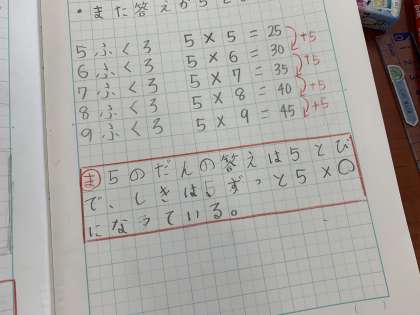 ・また答えが5と
5ふくろ 5×5=25
+5
6ふくろ 5×6=30
+5
7ふくろ 5×7=35
+5
8ふくろ 5×8=40
+5
9ふくろ 5×9=45
ま 5のだんの答えは5とび
で、しきはいずっと5×〇
になっている。